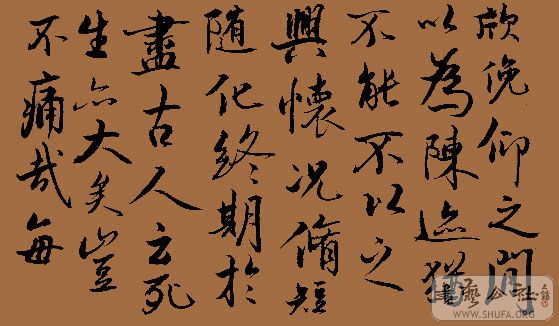 欣俛仰之間
以為陳迹猶
不能不以之
興懷况脩短
随化終期於
盡古人云死
生亦大矣豈
不痛哉每
書藝公社
WWW.SHUFA.ORG